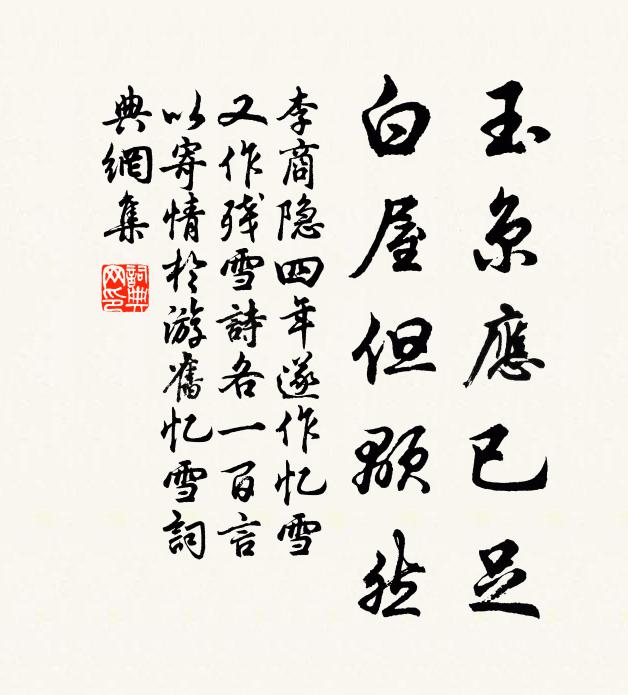 玉京應已足
白屋但顒然
李商隐四年遂作忆雪
又作残雪詩各一百言
以寄情於游舊忆雪詞
典網集
詞典网印